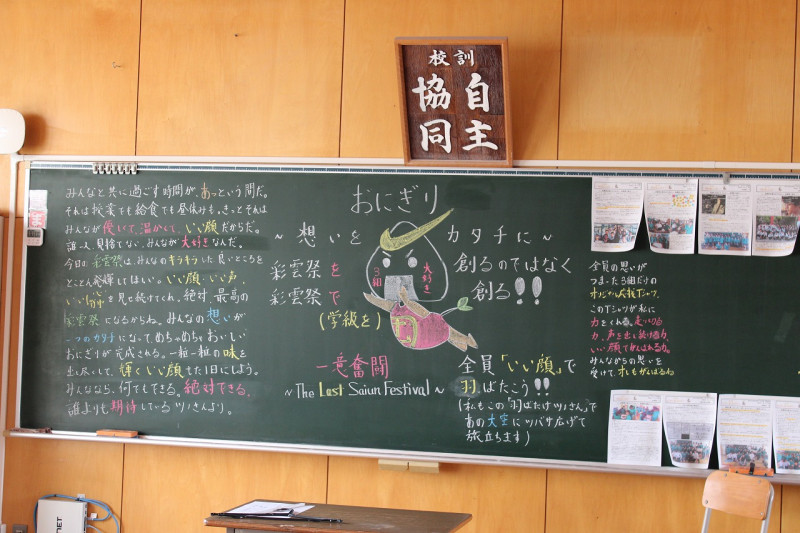 校訓
自主
協同
みんなと共に過ごす時間が、あっという間だ。
それは授業でも給食でも昼休みも。きっとそれは
みんなが優しくて、温かくて、いい顔だからだ。
誰一人見捨てない、みんなが大好きなんだ。
今日の彩雲祭は、みんなのキラキラした良いところを
とことん発揮してほしい。いい顔・いい声・
を見せ続けてくれ。絶対、最高の
彩雲祭になるからね。みんなの想いが
一つのカタチになって、めちゃめちゃおいしい
おにぎりが完成される。一粒一粒の味を
出し尽くして、輝くいい顔をした1日にしよう。
みんななら、何でもできる。絶対できる。
誰よりも期待しているツノさんより。
おにぎり
~想いを カタチに~
彩雲祭を 創るのではなく
彩雲祭で 創る!!
(学級を)
3組
大好き
一意奮闘
~The Last Saiun Festival~
全員「いい顔」で
羽ばたこう!!
(私もこの「羽ばたけツノさん」で
あの大空にツバサ広げて
旅立ちます)
全員の思いが
つまった3組だけの
オリジナル応援Tシャツ。
このTシャツが私に
力をくれる。走りつづける
力、声を出し続ける力、
いい顔でがんばれる力。
みんなからの思いを
受けて、オレもがんばるね
NET